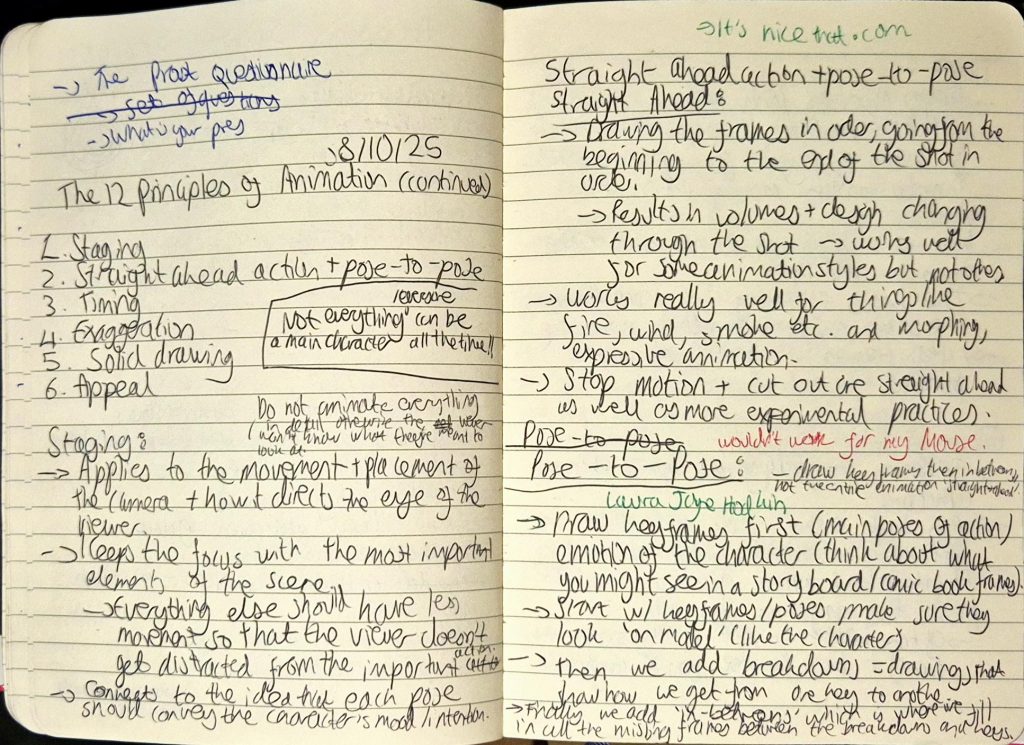 → The Proust Questionnaire
→ set of questions
→ What's your pres
→8/10/25
The 12 Principles of Animation (continued)
1. Staging
2. Straight ahead action + pose-to-pose
3. Timing
4. Exaggeration
5. Solid drawing
6. Appeal
/everyone
Not everything can be
a main character all the time!!
Do not animate everything
in detail otherwise the viewer
won't know what they're meant to
look at.
Staging:
→ Applies to the movement + placement of
the camera + how it directs the eye of the
viewer.
→ Keeps the focus with the most important
elements of the scene
→ Everything else should have less
movement so that the viewer doesn't
get distracted from the important action.
→ Connects to the idea that each pose
should convey the character's mood/intention.
→ It's nice that.com
Straight ahead action + pose-to-pose
Straight Ahead:
→ Drawing the frames in oder, going from the
beginning to the end of the shot in
order.
→ Results in volumes + design changing
through the shot → works well
for some animation styles but not others
→ Works really well for things like
fire, wind, smoke etc. and morphing,
expressive animation.
→ Stop motion + cut out are straight ahead
as well as more experimental practices.
Pose-to-pose wouldn't work for my Mouse.
Pose-to-Pose: - draw keyframes then inbetweens,
not the entire animation straight ahead.
Laura Jayne Hodkin
→ Draw keyframes first (main poses of action)
emotion of the character (think about what
you might see in a story board/comic book frames).
→ Start w/ keyframes/poses make sure they
look 'on model' (like the character)
→ Then we add breakdowns = drawings that
show how we get from one key to another.
→ Finally we add 'in-betweens' which is where we fill
in all the missing frames between the breakdowns and keys.